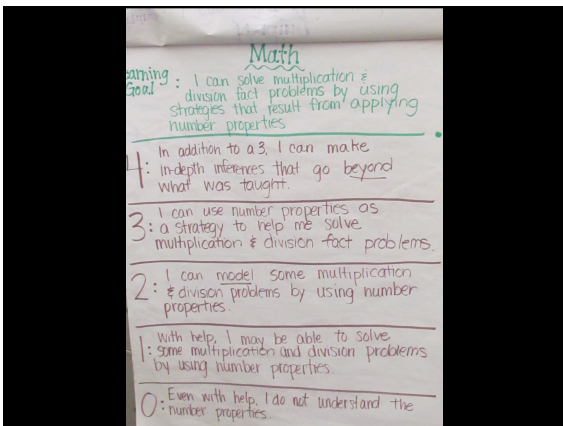 Math
earning
Goal : I can solve multiplication &
division fact problems by using
strategies that result from applying
number properties
4: In addition to a 3, I can make
in-depth inferences that go beyond
what was taught.
3: I can use number properties as
a strategy to help me solve
multiplication & division fact problems.
2: I can model some multiplication
& division problems by using number
properties.
1: With help, I may be able to solve
some multiplication and division problems
by using number properties.
0: Even with help, I do not understand the
number properties.